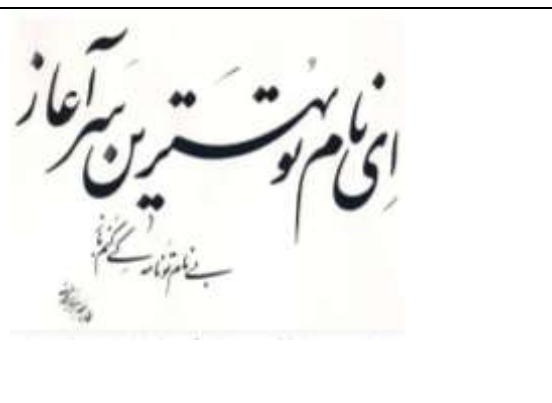 ای نام تو بهترین سرآغاز
بی نام تو نامه کی کنم باز